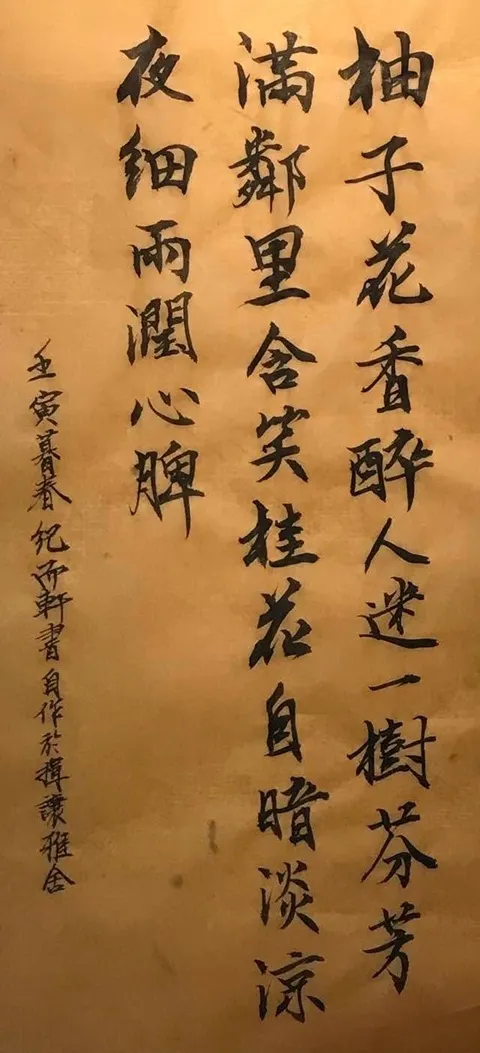 柚子花香醉人迷一樹芬芳
滿鄰里含笑桂花自暗淡涼
夜細雨潤心脾
壬寅暮春紀雨軒書自作於揖讓雅舍